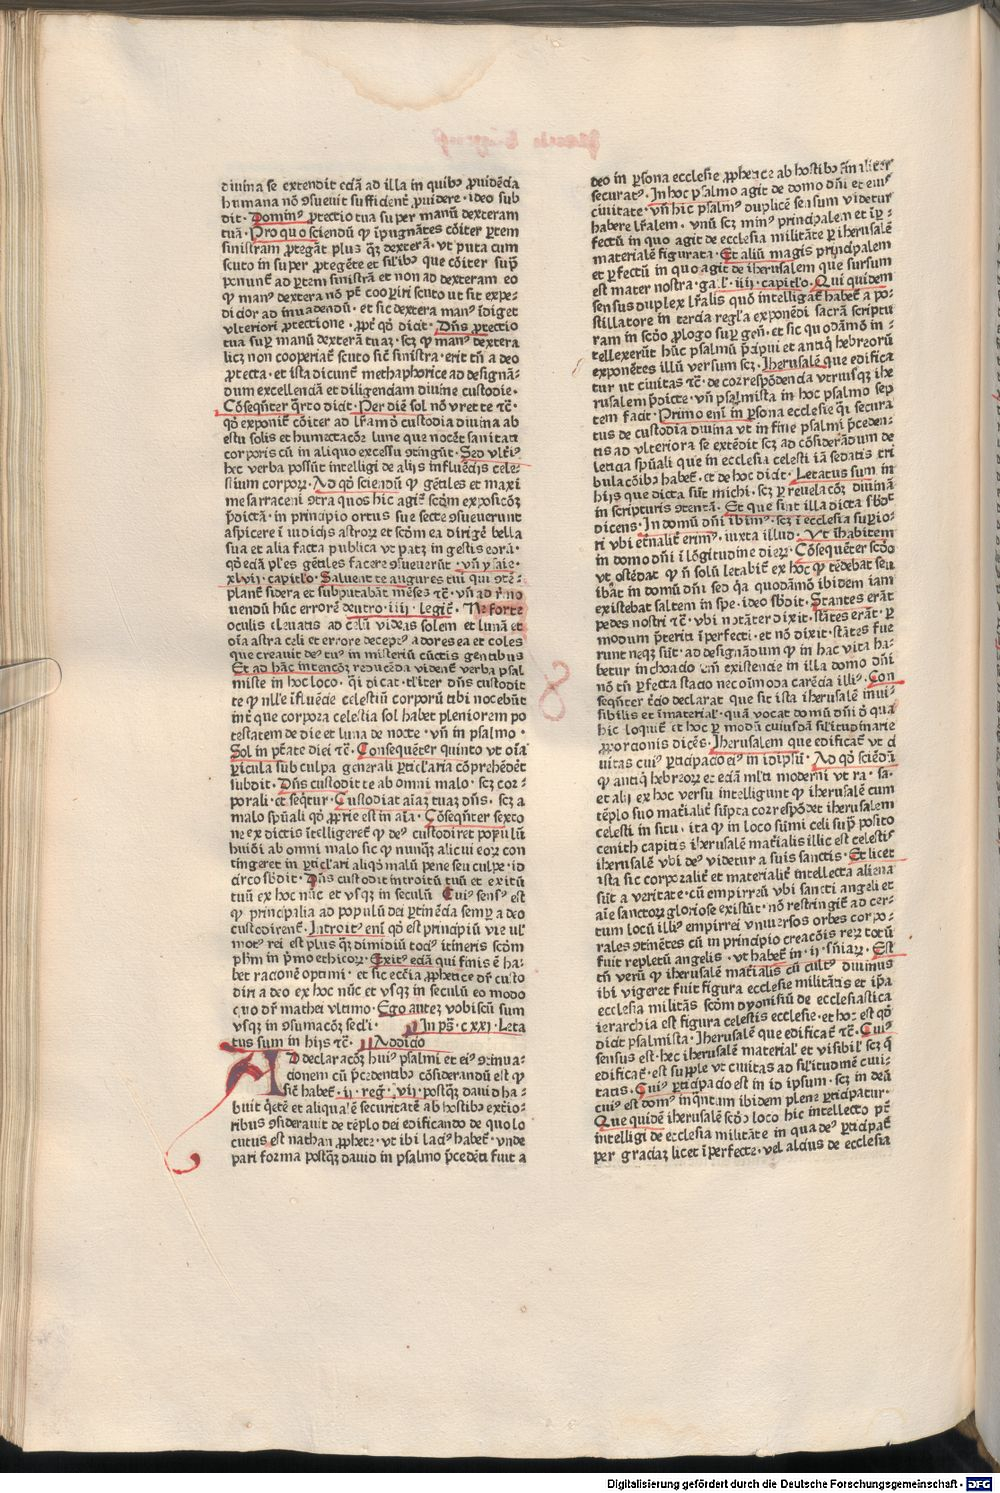 diuina se extendit eciā ad illa in quibꝰ ꝓuidēcia
humana nō ꝯsueuit sufficient̄ ꝓuidere · ideo sub
dit · Dominꝰ ꝓtectio tua super manū dexteram
tuā · Pro quo sciendū ꝙ īpugnātes cōiter ꝑtem
sinistram ꝓtegāt plus qᷓꝫ dexterā · vt puta cum
scuto in super ꝓtegēte et silibꝰ que cōiter suꝑ
ponunt̄ ad ꝑtem sinistrā et non ad dexteram eo
ꝙ manꝰ dextera nō pt̄ cooꝑiri scuto ut sit expe-
dicior ad inuadendū · et sic dextera manꝰ īdiget
vlteriori ꝓtectione · ꝓpt̄ qō dicit · Dn̄s ꝓtectio
tua suꝑ manū dexterā tuaꝫ · scꝫ ꝙ manꝰ dextera
licꝫ non cooperiat̄ scuto sic̄ sinistra · erit tn̄ a deo
ꝓtecta · et ista dicunt̄ methaphorice ad designā-
dum excellenciā et diligenciam diuine custodie ·
Cōseqn̄ter qᷓrto dicit · Per diē sol nō vret te ⁊c̄ ·
qō exponit̄ cōiter ad lr̄am ō custodia diuina ab
estu solis et humectacōꝫ lune que nocēt sanitati
corporis cū in aliquo excessu ꝯtingūt · Sed vltīꝰ
hec verba possūt intelligi de alijs influēcijs cele-
stium corporꝝ · Ad qō sciendū ꝙ gētiles et maxi
me sarraceni ꝯtra quos hic agit̄ scd̄m exposicōꝫ
p̄dictā · in principio ortus sue secte ꝯsueuerunt
aspicere ī iudicijs astroꝝ et scd̄m ea dirigē bella
sua et alia facta publica vt patꝫ in gestis eorū ·
qō eciā ples gētiles facere ꝯsueuerūt · vn̄ ysaie ·
xlvij · capitło · Saluent te augures tui qui ꝯtē-
plant̄ sidera et subputabāt mēses ⁊c̄ · vn̄ ad r̄ino
uendū hūc errorē deutro · iiij · legit̄ · Ne forte
oculis eleuatis ad celū videas solem et lunā et
oīa astra celi et errore deceptꝰ adores ea et coles
que creauit deꝰ tuꝰ in misteriū cūctis gentibus
Et ad hāc intencōꝫ reducēda vident̄ verba psal
miste in hoc loco · qͥ dicat · tłiter dn̄s custodit
te ꝙ nłłe īfluēcie celestiū corporū tibi nocebūt
int̄ que corpora celestia sol habet pleniorem po
testatem de die et luna de nocte · vn̄ in psalmo ·
Sol in ptāte diei ⁊c̄ · Consequēter quinto vt oīa
ꝑicula sub culpa generali ꝑticłaria cōprehēdēt
subdit · Dn̄s custodit te ab omni malo · scꝫ cor-
porali · et seqͥtur · Custodiat aīaꝫ tuaꝫ dn̄s · scꝫ a
malo spūali qō ꝓprie est in aīa · Cōseqn̄ter sexto
ne ex dictis ītelligeret̄ ꝙ deꝰ custodiret populū
huiōi ab omni malo sic ꝙ nunqᷓꝫ alicui eorꝝ con
tingeret in ꝑticłari aliqō malū pene seu culpe · id
circo sbdit · Dn̄s custodit introitū tuū et exitū
tuū ex hoc nūc et vsqꝫ in seculū · Cuiꝰ sensꝰ est
ꝙ principalia ad populū dei ꝑtinēcia semꝑ a deo
custodirent̄ · Introitꝰ eni qō est principiū vie ul
motꝰ rei est plus qᷓꝫ dimidiū tociꝰ itineris scd̄m
ph̄m in p̄mo ethicoꝝ · Exitꝰ eciā qui finis ē ha-
bet racionē optimi · et sic ecc̄ia ꝓphetice dr̄ custo
diri a deo ex hoc nūc et vsqꝫ in seculū eo modo
quo dr̄ mathei vltimo · Ego autꝫ vobiscū sum
vsqꝫ in ꝯsumacōꝫ secłi · In ps̄ · cxxj · Leta
tus sum in hijs ⁊c̄ · Addicio
AD declaracōꝫ huiꝰ psalmi et eiꝰ ꝯtinua-
cionem cū p̄cedentibꝰ cōsiderandū est ꝙ
sic̄ habet̄ · ij · reḡ · vij · postqᷓꝫ dauid ha-
buit qͥetē et aliqualē securitatē ab hostibꝰ exteri-
ribus ꝯsiderauit de tēplo dei edificando de quo lo
cutus est nathan ꝓphete · vt ibi laciꝰ habet̄ · vnde
pari forma postqᷓꝫ dauid in psalmo p̄cedēti fuit a
deo in ꝑsona ecclesie ꝓphetice ab hostibꝰ
securatꝰ · In hoc psalmo agit de domo dn̄i et eiꝰ
ciuitate · vn̄ hic psalmꝰ duplicē sensum videtur
habere lr̄alem · vnū scꝫ minꝰ principalem et īꝑ-
fectū in quo agit de ecclesia militāte ꝑ iherusalē
materialē figurata · Et aliū magis principalem
et ꝑfectū in quo agit de iherusalem que sursum
est mater nostra · gał · iiij · capitło · Qui quidem
sensus duplex lr̄alis quō intelligāt̄ habet̄ a po-
stillatore in tercia regła exponēdi sacrā scriptu
ram in scd̄o ꝓlogo suꝑ gen̄ · et sic quodāmō in-
tellexerūt hūc psalmū p̄cipui et antiqͥ hebreorū
exponētes illū versum scꝫ · Iherusalē que edifica
tur ut ciuitas ⁊c̄ · de correspōdencia vtriusqꝫ ihe
rusalem p̄dicte · vn̄ psalmista in hoc psalmo sep
tem facit · Primo eni in ꝑsona ecclesie qͥ secura
tus de custodia diuina vt in fine psalmi p̄ceden-
tis ad vlteriora se extēdit scꝫ ad cōsiderādum de
leticia spūali que in ecclesia celesti iā sedatis tri
bulacōibꝰ habet̄ · et de hoc dicit · Letatus sum in
hijs que dicta sūt michi · scꝫ ꝑ reuelacōꝫ diuinā
in scripturis ꝯtentā · Et que sint illa dicta sbdit
dicens · In domū dn̄i ibimꝰ · scꝫ ī ecclesia suꝑio-
ri vbi et̄nalit̄ erimꝰ · iuxta illud · Vt īhabitem
in domo dn̄i ī lōgitudine dieꝝ · Cōsequēter scd̄o
vt ostēdāt ꝙ n̄ solū letabit̄ ex hoc ꝙ tēdebāt seu
ibāt in domū dn̄i sed qͥa quodāmō ibidem iam
existebāt saltem in spe · ideo sbdit · Stantes erāt
pedes nostri ⁊c̄ · vbi notāter dixit · stātes erāt · ꝑ
modum p̄teriti īperfecti · et nō dixit · stātes fue
runt neqꝫ sūt · ad designādum ꝙ in hac vita ha-
betur inchoacio existencie in illa domo dn̄i
nō tn̄ ꝑfecta stacio nec oīmoda carēcia illiꝰ · Con
seqn̄ter t̄cio declarat que sit ista iherusalē inui-
sibilis et īmaterial̄ · quā vocat domū dn̄i ō qua
hic loquit̄ et hoc ꝑ modū cuiusdā sił'itudinarie
ꝓporcionis dicēs · Iherusalem que edificat̄ vt ci
uitas cuiꝰ ꝑticipacio eiꝰ in idipsū · Ad qō sciēdū
ꝙ antiqͥ hebreoꝝ et eciā młti moderni vt ra · sa ·
et alij ex hoc versu intelligunt ꝙ iherusalē cum
tēplo suo mat̄ialit̄ sūpta correspōdet iherusalem
celesti in situ · ita ꝙ in loco sūmi celi suꝑ posito
cenith capitis iherusalē mat̄ialis illic est celestis
iherusalē vbi deꝰ videtur a suis sanctis · Et licet
ista sic corporalit̄ et materialit̄ intellecta aliena
sūt a veritate · cū empirreū vbi sancti angeli et
aīe sanctoꝝ gloriose existūt · nō restringit̄ ad cer-
tum locū illiꝰ empirrei vniuersos orbes corpo-
rales ꝯtinētes cū in principio creacōis reꝝ totū
fuit repletū angelis · vt habet̄ in · ij · sn̄iaꝝ · Est
tn̄ verū ꝙ iherusalē mat̄ialis cū cultꝰ diuinus
ibi vigeret fuit figura ecclesie militātis et ip̄a
ecclesia militās scd̄m dyonisiū de ecclesiastica
ierarchia est figura celestis ecclesie · et hoc est qō
dicit psalmista · Iherusalē que edificat̄ ⁊c̄ · Cuiꝰ
sensus est · hec iherusalē material̄ et visibil̄ scꝫ q̄
edificat̄ · est supple vt ciuitas ad sił'itudinē ciui-
tatis · Cuiꝰ ꝑticipacio est in id ipsum · scꝫ in deū
cuiꝰ est domꝰ inqͣntum ibidem plene ꝑticipatur ·
Que quidē iherusalē scd̄o loco hic intellecto pt̄
intelligi de ecclesia militāte in qua deꝰ ꝑticipat̄
per graciaꝫ licet īperfecte · vel alcius de ecclesia
8
Digitalisierung gefördert durch die Deutsche Forschungsgemeinschaft · DFG